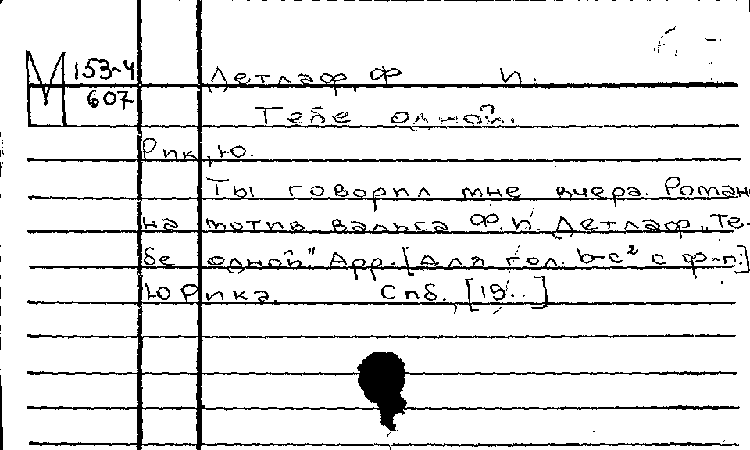 М 153-4
607
Детлаф, Ф. И.
Тебе одной.
Рик, Ю.
Ты говорил мне вчера. Роман
на мотив вальса Ф. И. Детлаф „Те-
бе одной". Арр. [для гол. b-c² с ф-п.]
Ю Рика. Спб. [19..]